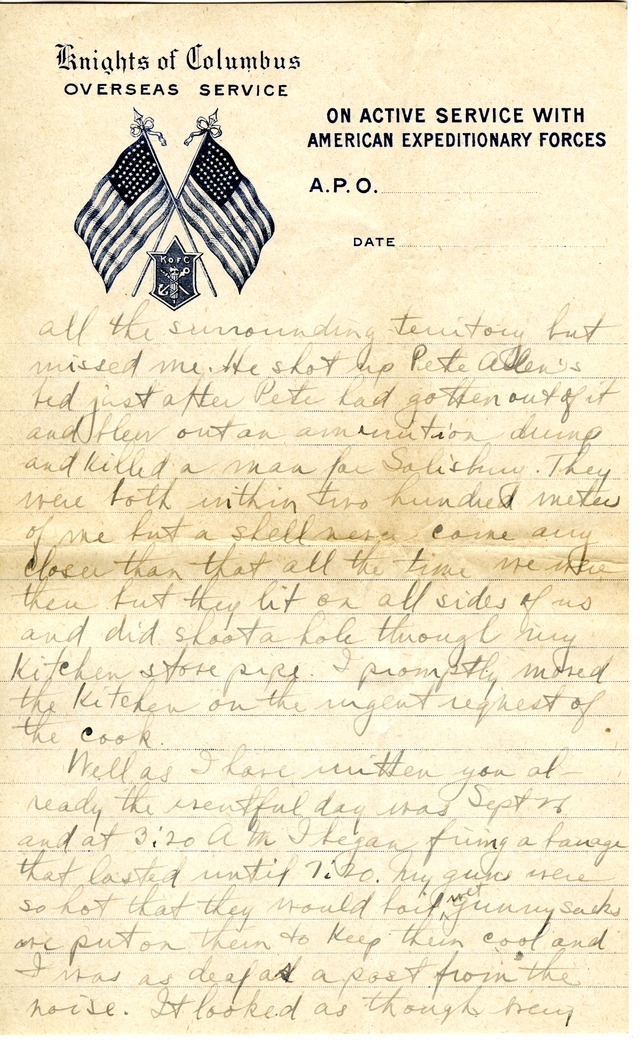 Knights of Columbus
OVERSEAS SERVICE
ON ACTIVE SERVICE WITH
AMERICAN EXPEDITIONARY FORCES
A.P.O.
DATE
K of C
all the surrounding territory but
missed me. He shot up Pete Allen's
bed just after Pete had gotten out of it
and blew out an amunition dump
and killed a man for Salisbury. They
were both within two hundred meters
of me but a shell never come any
closer than that all the time we were
then but they lit on all sides of us
and did shoot a hole through my
kitchen stove pipe. I promptly moved
the kitchen on the urgent request of
the cook.
Well as I have written you al-
ready the eventful day was Sept 26
and at 3:20 A M I began firing a barage
that lasted until 7:20. My guns were
so hot that they would boil wet gunny sacks
we put on them to keep them cool and
I was as deaf as a post from the
noise. It looked as though every